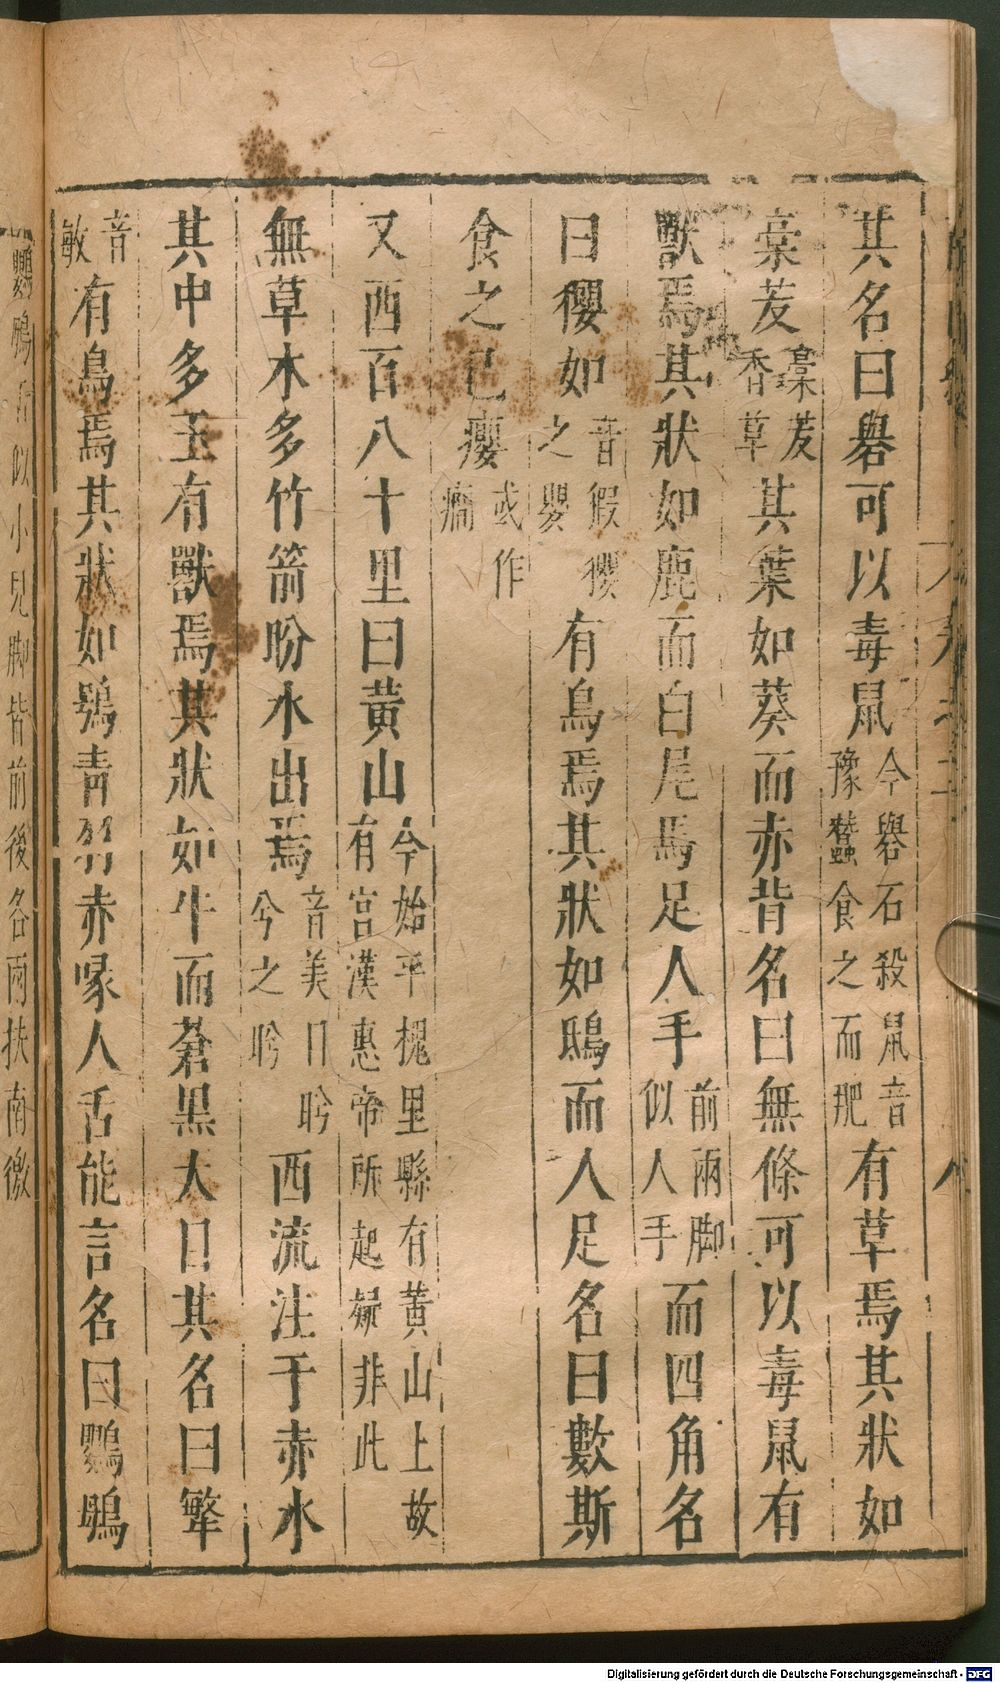 其名曰礜可以毒鼠今礜石殺鼠音豫蠶食之而肥有草焉其狀如
槀茇藁茇香草其葉如葵而赤背名曰無條可以毒鼠有
獸焉其狀如鹿而白尾馬足人手前兩脚似人手而四角名
曰玃如音假玃之嬰有鳥焉其狀如鴟而人足名曰數斯
食之已癭或作癇
又西百八十里曰黃山今始平槐里縣有黃山上故有宮漢惠帝所起疑非此
無草木多竹箭盼水出焉音美目盼兮之盼西流注于赤水
其中多玉有獸焉其狀如牛而蒼黑大目其名曰㸷
音敏有鳥焉其狀如鴞青羽赤喙人舌能言名曰鸚䳇
鸚䳇舌似小兒脚皆前後各兩扶南徼
Digitalisierung gefördert durch die Deutsche Forschungsgemeinschaft - DFG